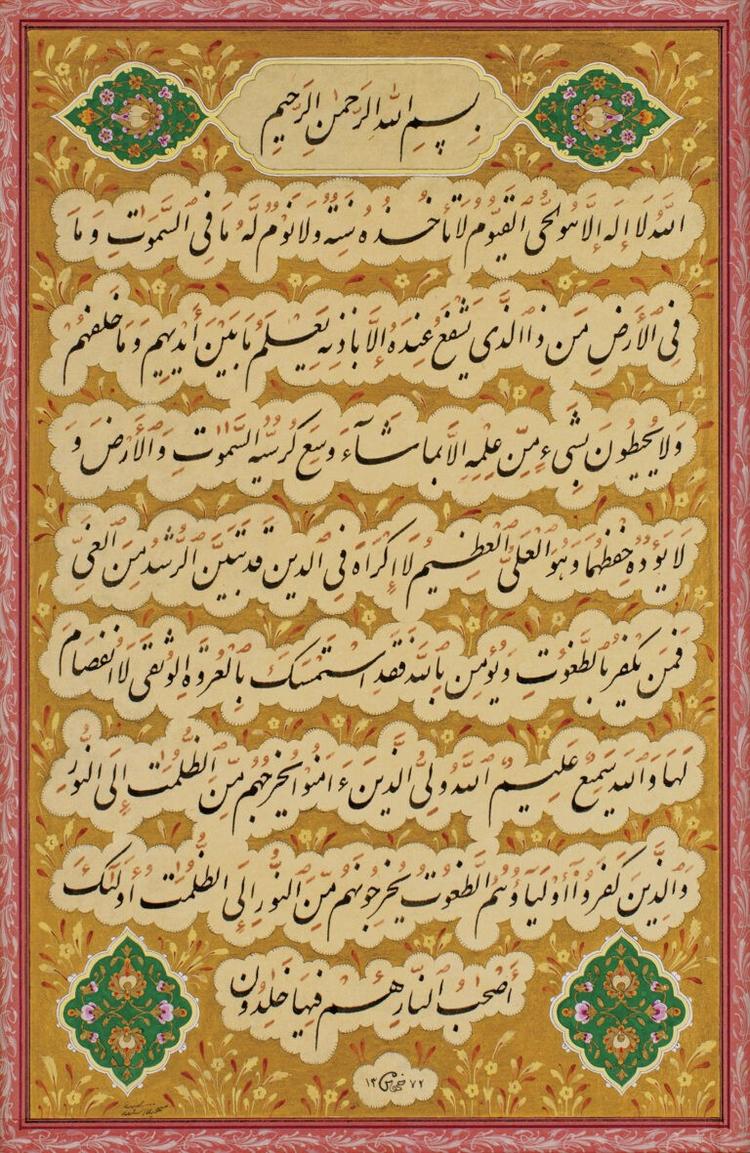 بِسمِ اللهِ الرَّحمٰنِ الرَّحیمِ
اللهُ لا إلٰهَ إلّا هُوَ الحَیُّ القَیُّومُ لاتَأخُذُهُ سِنَةٌ ولانَومٌ لَهُ مَا فِی السَّمٰوٰتِ وَ مَا
فِی الأرضِ مَن ذَا الَّذی یَشفَعُ عِندَهُ إلّا بِاذنِهِ یَعلَمُ مَا بَینَ أیدیهِم وَ مَا خَلفَهُم
وَلا یُحیطُونَ بِشَیءٍ مِّن عِلمِهِ إلّا بِما شآءَ وَسِعَ کُرسِیُّهُ السَّمٰوٰتِ وَ الأرضَ وَ
لا یَؤُدُهُ حِفظُهُما وَ هُوَ العَلیُّ العَظیمُ لا إکراهَ فِی الدّینِ قَد تَبَیَّنَ الرُّشدُ مِنَ الغَیِّ
فَمَن یَکفُر بِالطّٰغُوتِ وَ یُؤمِن بِاللهِ فَقَدِ استَمسَکَ بِالعُروَةِ الوُثقیٰ لا انفِصامَ
لَهَا وَ اللهُ سَمیعٌ عَلیمٌ اللهُ وَلیُّ الَّذینَ ءَامَنُوا یُخرِجُهُم مِّنَ الظُّلُمٰتِ إلَی النُّورِ
وَ الَّذینَ کَفَرُوا أَولِیاؤُهُمُ الطّٰغُوتُ یُخرِجُونَهُم مِّنَ النُّورِ إلَی الظُّلُمٰتِ أُولٰئِکَ
أصحٰبُ النّارِ هُم فیها خٰلِدُونَ
۱۳۷۲